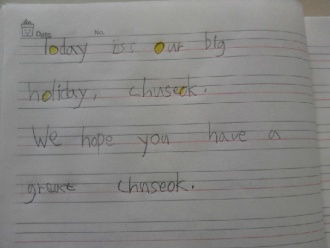 Date No.
Today iss our big
holiday, chuseok.
We hope you have a
great chuseok.